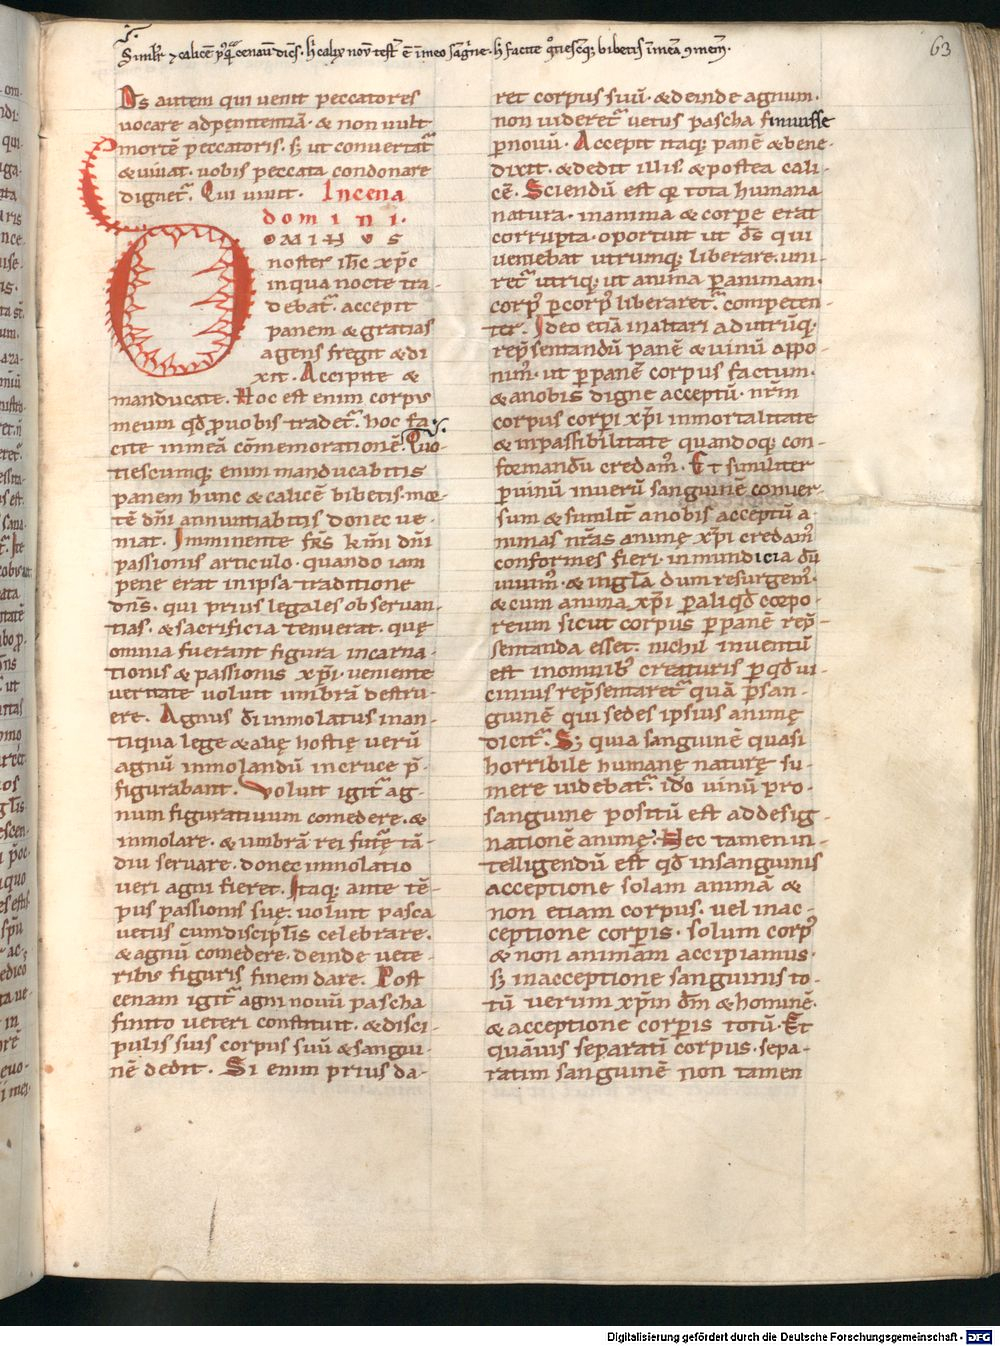 Similr̄ ⁊ calicē pꝰq̄ cenau̅ dic̄s. h̓ calix nou̅ testm̄ ē in meo sāg̓ne. h̓ facite qͦtiescq; bibetis in meā ꝯmem̄.
63
Ds autem qui uenit peccatores
uocare ad penitentiā. & non uult
mortē peccatoris. s; ut conuertat᷑
& uiuat. uobis peccata condonare
dignet᷑. Qui uiuit. In cena
domini.
OMINUS
noster ih̄c xp̄c
in qua nocte tra-
debat᷑. accepit
panem & gratias
agens fregit & di
xit. Accipite &
manducate. Hoc est enim corpus
meum qd̄ ꝓ uobis tradet᷑. hoc fa-
cite in meā cōmemorationē. Quo-
tiescumq; enim manducabitis
panem hunc & calicē bibetis. mor-
tē dn̄i annuntiabitis donec ue-
niat. Imminente fr̄s kmi dn̄i
passionis articulo. quando iam
pene erat in ipsa traditione
dn̄s. qui prius legales obseruan-
tias. & sacrificia tenuerat. quę
omnia fuerant figura incarna-
tionis & passionis xp̄i. ueniente
ueritate uoluit umbrā destru-
ere. Agnus ēi inmolatus in an-
tiqua lege & alię hostię uerū
agnū inmolandū in cruce p̄-
figurabant. Voluit igit᷑ ag-
num figuratiuum comedere. &
inmolare. & umbrā rei futurę tā-
diu seruare. donec inmolatio
ueri agni fieret. Itaq; ante tē-
pus passionis suę. uoluit pasca
uetus cum discipl̄is celebrare.
& agnū comedere. deinde uete-
ribus figuris finem dare. Post
cenam igit᷑ agni nouū pascha
finito ueteri constituit. & disci-
pulis suis corpus suū & sangui-
nē dedit. Si enim prius da-
ret corpus suū. & deinde agnum.
non uideret᷑ uetus pascha finiuisse
ꝑ nouū. Accepit itaq; panē & bene-
dixit. & dedit illis. & postea cali-
cē. Sciendū est qr̄ tota humana
natura. in anima & corpore erat
corrupta. oportuit ut d̄s qui
ueniebat utrumq; liberare. uni-
ret᷑ utriq; ut anima ꝑ animam.
corpꝰ ꝑ corpꝰ liberaret᷑. competen-
ter. Ideo etiā in altari ad utrūq;
rep̄sentandū panē & uinū appo-
nimꝰ. ut ꝑ panē corpus factum.
& a nobis digne acceptū. nr̄m
corpus corpi xp̄i in mortalitate
& inpassibilitate quandoq; con-
formandū credamꝰ. Et similiter
ꝑ uinū in uerū sanguinē conuer-
sum & similit̄ a nobis acceptū a-
nimas nr̄as animę xp̄i credamꝰ
conformes fieri. in mundicia dū
uiuimꝰ. & in gl̄a dum resurgem̄.
& cum anima xp̄i ꝑ aliqd̄ corpo-
reum sicut corpus ꝑ panē rep̄-
sentanda esset. nichil inuentū
est in omnibꝰ creaturis ꝑ qd̄ ui-
cinius rep̄sentaret᷑ quā ꝑ san-
guinē qui sedes ipsius animę
dicit᷑. S; quia sanguinē quasi
horribile humanę naturę su-
mere uidebat᷑. ido uinū pro
sanguine positū est ad desig-
nationē animę. Hec tamen in-
telligendū est qd̄ in sanguinis
acceptione solam animā &
non etiam corpus. uel in ac-
ceptione corporis. solum corpꝰ
& non animam accipiamus.
s; in acceptione sanguinis to-
tū uerum xp̄m dm̄ & hominē.
& acceptione corporis totū. Et
quāuis separatī corpus. sepa-
ratim sanguinē non tamen
Digitalisierung gefördert durch die Deutsche Forschungsgemeinschaft - DFG